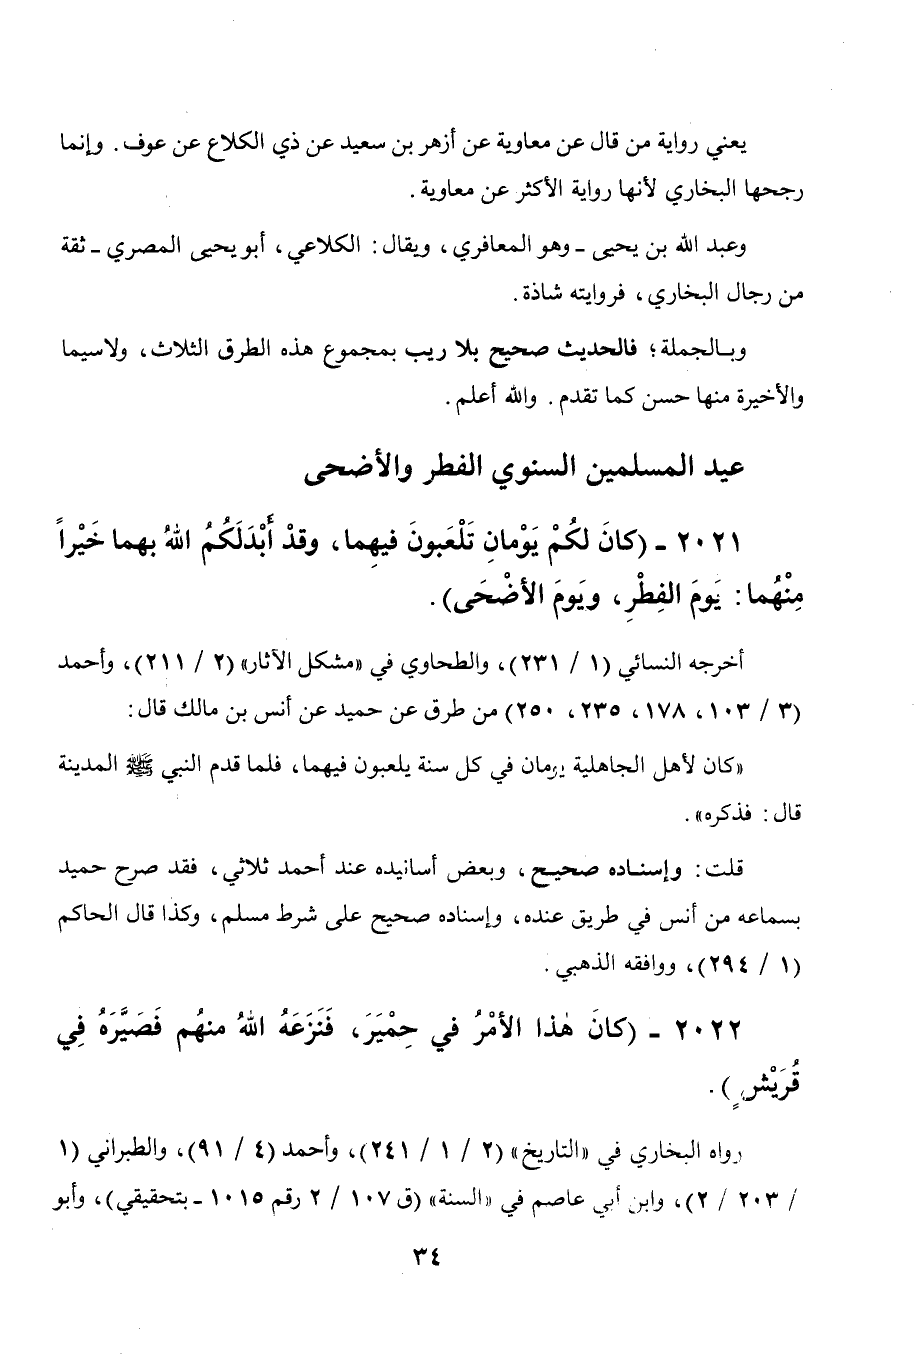 يعني رواية من قال عن معاوية عن أزهر بن سعيد عن ذي الكلاع عن عوف. وإنما
رجحها البخاري لأنها رواية الأكثر عن معاوية.
وعبد الله بن يحيى ـ وهو المعافري، ويقال: الكلاعي، أبو يحيى المصري ـ ثقة
من رجال البخاري، فروايته شاذة.
وبالجملة؛ فالحديث صحيح بلا ريب بمجموع هذه الطرق الثلاث، ولاسيما
والأخيرة منها حسن كما تقدم. والله أعلم.
عيد المسلمين السنوي الفطر والأضحى
٢٠٢١ ـ (كانَ لكُمْ يَوْمانِ تَلْعَبونَ فيهِما، وقدْ أَبْدَلَكُمُ اللهُ بهما خَيْراً
مِنْهُما: يَومَ الفِطْرِ، ويَومَ الأضْحَى).
أخرجه النسائي (١ / ٢٣١)، والطحاوي في «مشكل الآثار» (٢ / ٢١١)، وأحمد
(٣ / ١٠٣، ١٧٨، ٢٣٥، ٢٥٠) من طرق عن حميد عن أنس بن مالك قال:
«كان لأهل الجاهلية يومان في كل سنة يلعبون فيهما، فلما قدم النبي ﷺ المدينة
قال: فذكره».
قلت: وإسناده صحيح، وبعض أسانيده عند أحمد ثلاثي، فقد صرح حميد
بسماعه من أنس في طريق عنده، وإسناده صحيح على شرط مسلم، وكذا قال الحاكم
(١ / ٢٩٤)، ووافقه الذهبي.
٢٠٢٢ ـ (كانَ هٰذا الأمْرُ في حِمْيَرَ، فَنَزعَهُ اللهُ منهُم فَصَيَّرَهُ فِي
قُرَيْشٍ).
رواه البخاري في «التاريخ» (٢ / ١ / ٢٤١)، وأحمد (٤ / ٩١)، والطبراني (١
/ ٢٠٣ / ٢)، وابن أبي عاصم في «السنة» (ق ١٠٧ / ٢ رقم ١٠١٥ ـ بتحقيقي)، وأبو
٣٤